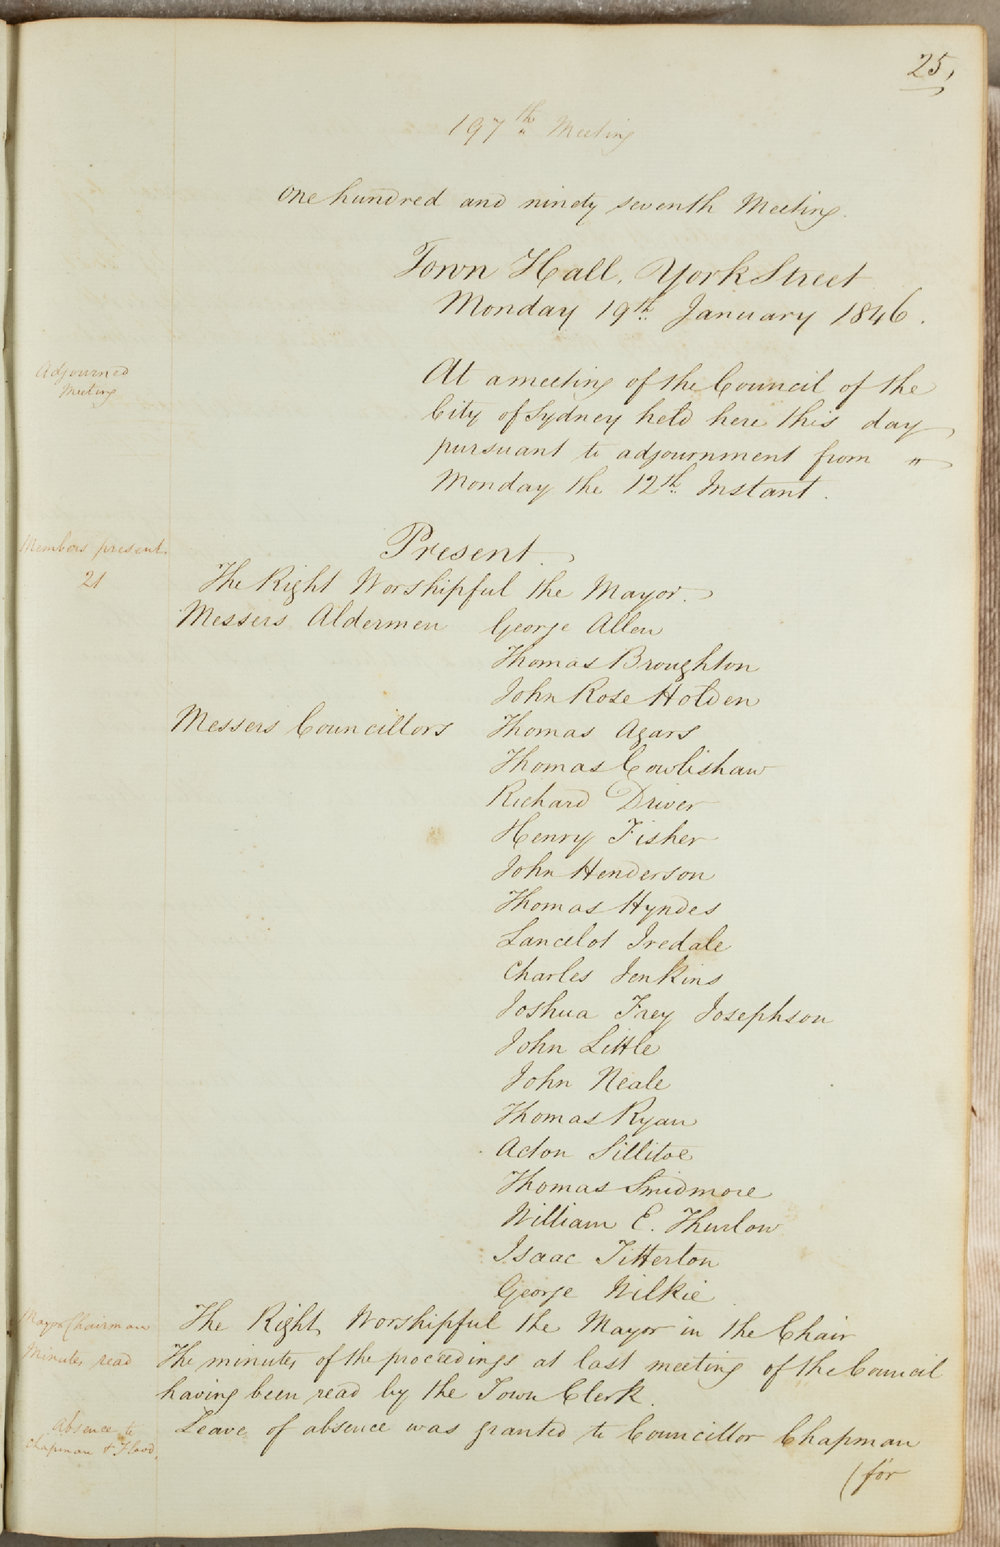 25,
197th Meeting
One hundred and ninety seventh Meeting.
Town Hall, York Street
Monday 19th January 1846.
Adjourned
Meeting
At a meeting of the Council of the
City of Sydney held here this day
pursuant to adjournment from "
Monday the 12th Instant.
Members present.
21
Present.
The Right Worshipful the Mayor.
Messers Aldermen George Allen
Thomas Broughton
John Rose Holden
Messers Councillors Thomas Agars
Thomas Cowlishaw
Richard Driver
Henry Fisher
John Henderson
Thomas Hyndes
Lancelot Iredale
Charles Jenkins
Joshua Frey Josephson
John Little
John Neale
Thomas Ryan
Acton Sillitoe
Thomas Smidmore
William E. Thurlow
Isaac Titterton
George Wilkie
Mayor Chairman
The Right Worshipful the Mayor in the Chair
Minutes read
The minutes of the proceedings at last meeting of the Council
having been read by the Town Clerk.
Absence to
Chapman & Flood.
Leave of absence was granted to Councillor Chapman
(for